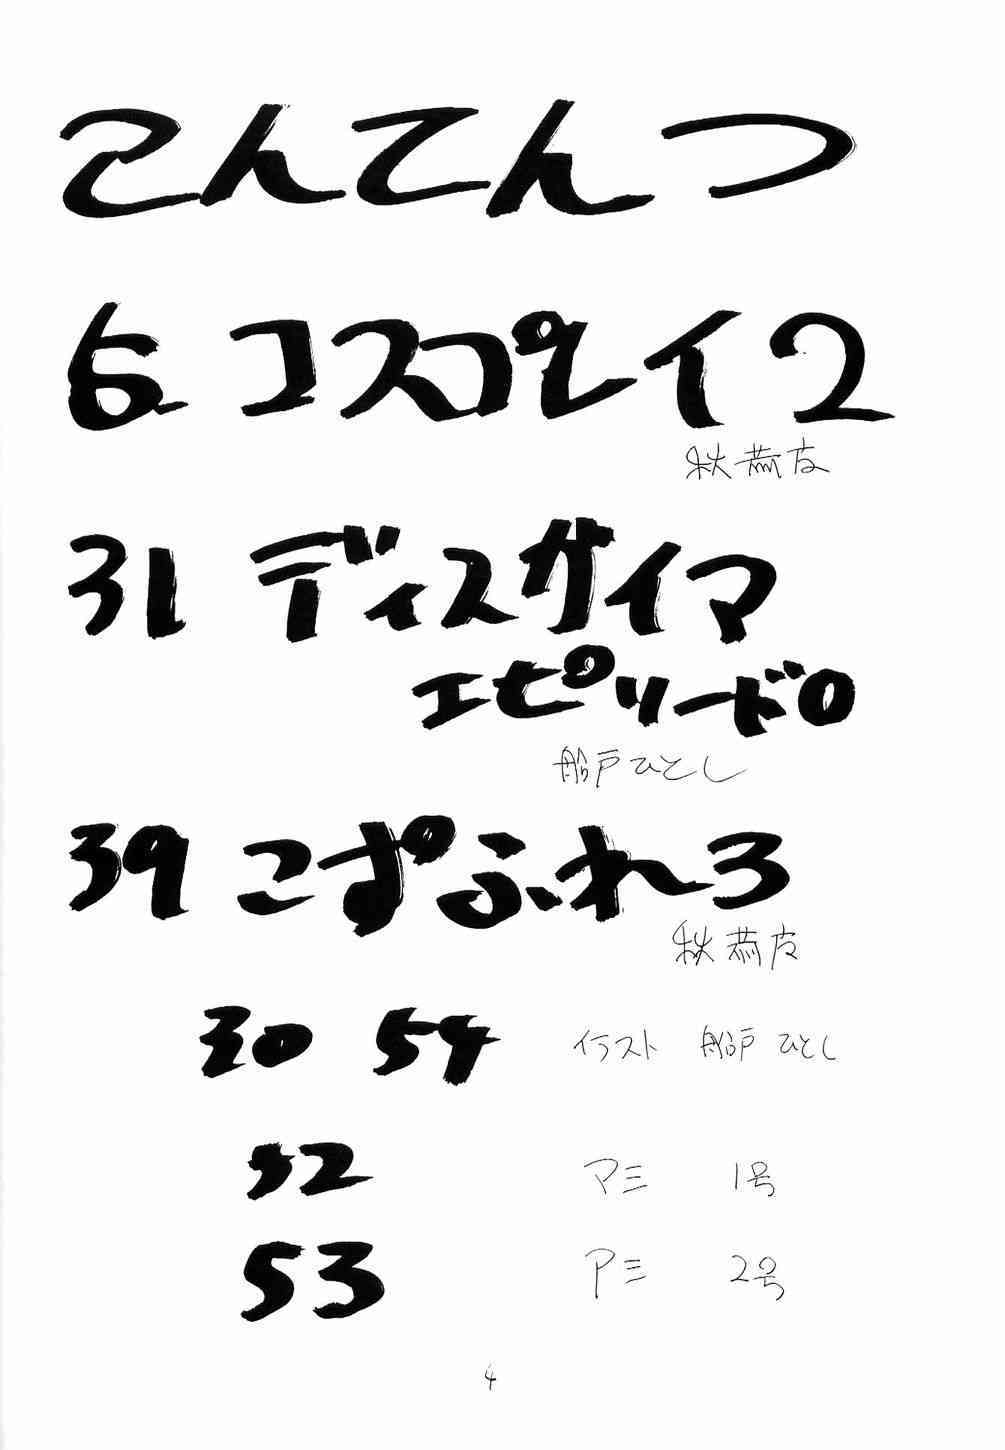 こんてんつ
6 コスプレイ2
秋恭友
31 ディスサイマ
エピソード0
船戸ひとし
39 こすぷれ3
秋恭友
30 54 イラスト 船戸ひとし
52 マミ 1号
53 アミ 2号
4